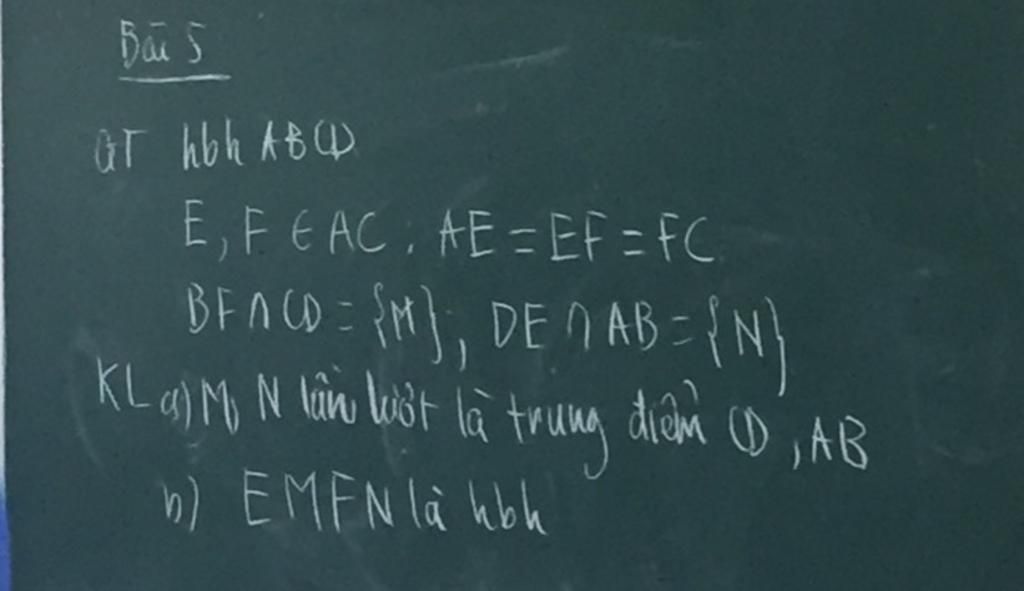 Bài 5
GT hbh ABCD
E, F ∈ AC. AE = EF = FC
BF ∩ CD = {M}; DE ∩ AB = {N}
KL a) M, N lần lượt là trung điểm CD, AB
b) EMFN là hbh